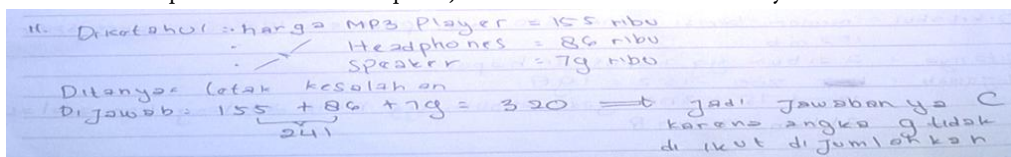 11. Diketahui : harga MP3 Player = 155 ribu
Headphones = 86 ribu
Speaker = 79 ribu
Ditanya = Letak kesalahan
Dijawab = 155 + 86 + 79 = 320 ⇒ Jadi Jawaban ya C
241
karena angka 9 tidak
di ikut di jumlahkan